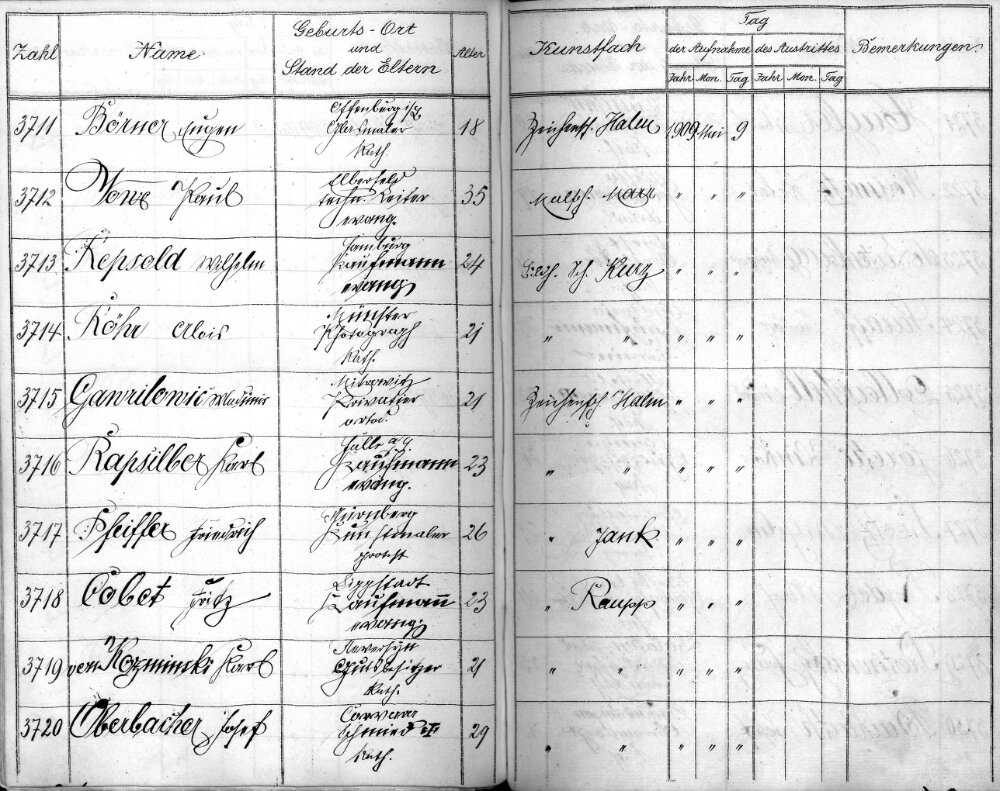 Zahl Name Geburts-Ort und Stand der Eltern Alter Kunstfach Tag der Aufnahme des Austrittes Bemerkungen.
Jahr Mon. Tag Jahr Mon. Tag
3711 Börner Eugen Offenburg i/B Glasmaler Kath. 18 Zeichensch. Halm 1909 Mai 9
3712 Vowe Paul Elberfeld techn. Leiter evang. 35 Malsch. Marr " " "
3713 Repsold Wilhelm Hamburg Kaufmann evang. 24 Bildh. Sch. Kurz " " "
3714 Röhr Alois Münster Photograph Kath. 21 " " " " "
3715 Gawrilowic Wladimir Mitrowitz Privatier ortod. 21 Zeichensch Halm " " "
3716 Rapsilber Karl Halle a/S. Kaufmann evang. 23 " " " " "
3717 Pfeiffer Friedrich Nürnberg Kunstmaler protest 26 " Jank " " "
3718 Cobet Fritz Lippstadt Kaufmann evang. 23 " Raupp " " "
3719 von Kozminski Karl Gutsbesitzer Kath. 21 " " " "
3720 Oberbacher Josef Corvara Schmied Kath. 29 " " " " "